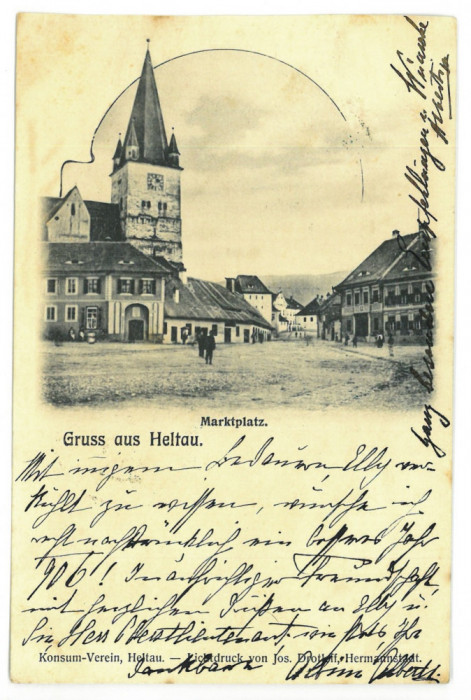 Marktplatz.
Gruss aus Heltau.
Mit innigem Bedauern, Elly ver-
kühlt zu wissen, wünsche ich
recht nachdrücklich ein besseres Jahr
906! In aufrichtiger Freundschaft,
mit herzlichen Grüßen an Elly u.
Sie, Herr Oberstlieutenant, wie stets Ihr
dankbarer
Konsum-Verein, Heltau. — Lichtdruck von Jos. Drotleff, Hermannstadt.
Ganz besonderen u.